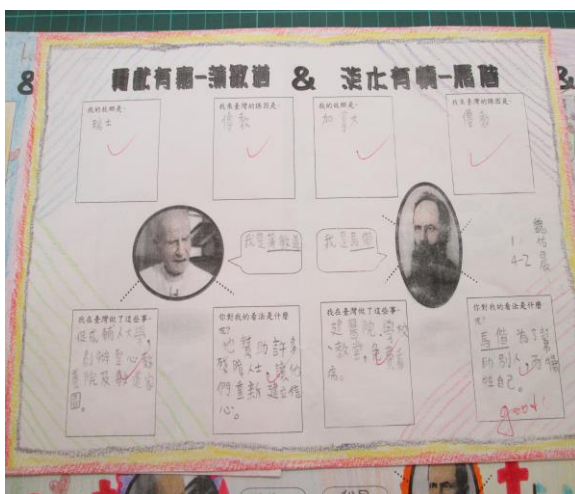 奉獻有情-蒲敏道 & 淡水有情-馬偕
&
&
我的故鄉是:
瑞士
我來臺灣的緣因是:
傳教
我的故鄉是:
加拿大
我來臺灣的緣因是:
傳教
我是蒲敏道
我是馬偕
4-2
我在臺灣做了這些事:
任教輔人大學,
創辦聖心教
養院及
園。
你對我的看法是什麼
呢?
他幫助許多
殘障人士,讓他
們重新建立信
心。
我在臺灣做了這些事:
建醫院、學校
、教堂,免費看
病。
你對我的看法是什麼
呢?
馬偕為了幫
助別人,而犧
牲自己。
good!